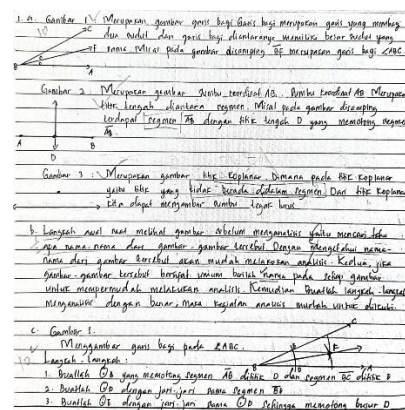 1. A. Gambar 1. Merupakan gambar garis bagi Garis bagi merupakan garis yang membagi
10
dua sudut dan garis bagi diantaranya memiliki besar sudut yang
sama. Misal pada gambar disamping BF merupakan garis bagi ∠ABC.
C
F
B
A
Gambar 2 : Merupakan gambar sumbu koordinat AB. Sumbu koordinat AB Merupakan
titik tengah diantara segmen. Misal pada gambar disamping
terdapat segmen AB dengan titik tengah D yang memotong segmen
AB.
A
B
D
Gambar 3 : Merupakan gambar titik koplanar. Dimana pada titik koplanar
yaitu titik yang tidak berada didalam segmen. Dari titik koplanar
kita dapat menggambar sumbu tegak lurus
b. Langkah awal saat melihat gambar sebelum menganalisis yaitu mencari tahu
apa nama-nama dari gambar-gambar tersebut. Dengan mengetahui nama-
nama dari gambar tersebut akan mudah melakukan analisis. Kedua, jika
gambar-gambar tersebut bersifat umum buatlah nama pada setiap gambar
untuk mempermudah melakukan analisis. Kemudian buatlah langkah-langkah
menganalisis dengan benar, maka kegiatan analisis mudah untuk
c. Gambar 1.
Menggambar garis bagi pada ∠ABC.
10
Langkah-langkah :
C
F
B
D
A
1. Buatlah ⊙B yang memotong segmen AB dititik D dan segmen BC dititik E
2. Buatlah ⊙D dengan jari-jari sama segmen
3. Buatlah ⊙E dengan jari-jari sama ⊙D sehingga memotong busur D